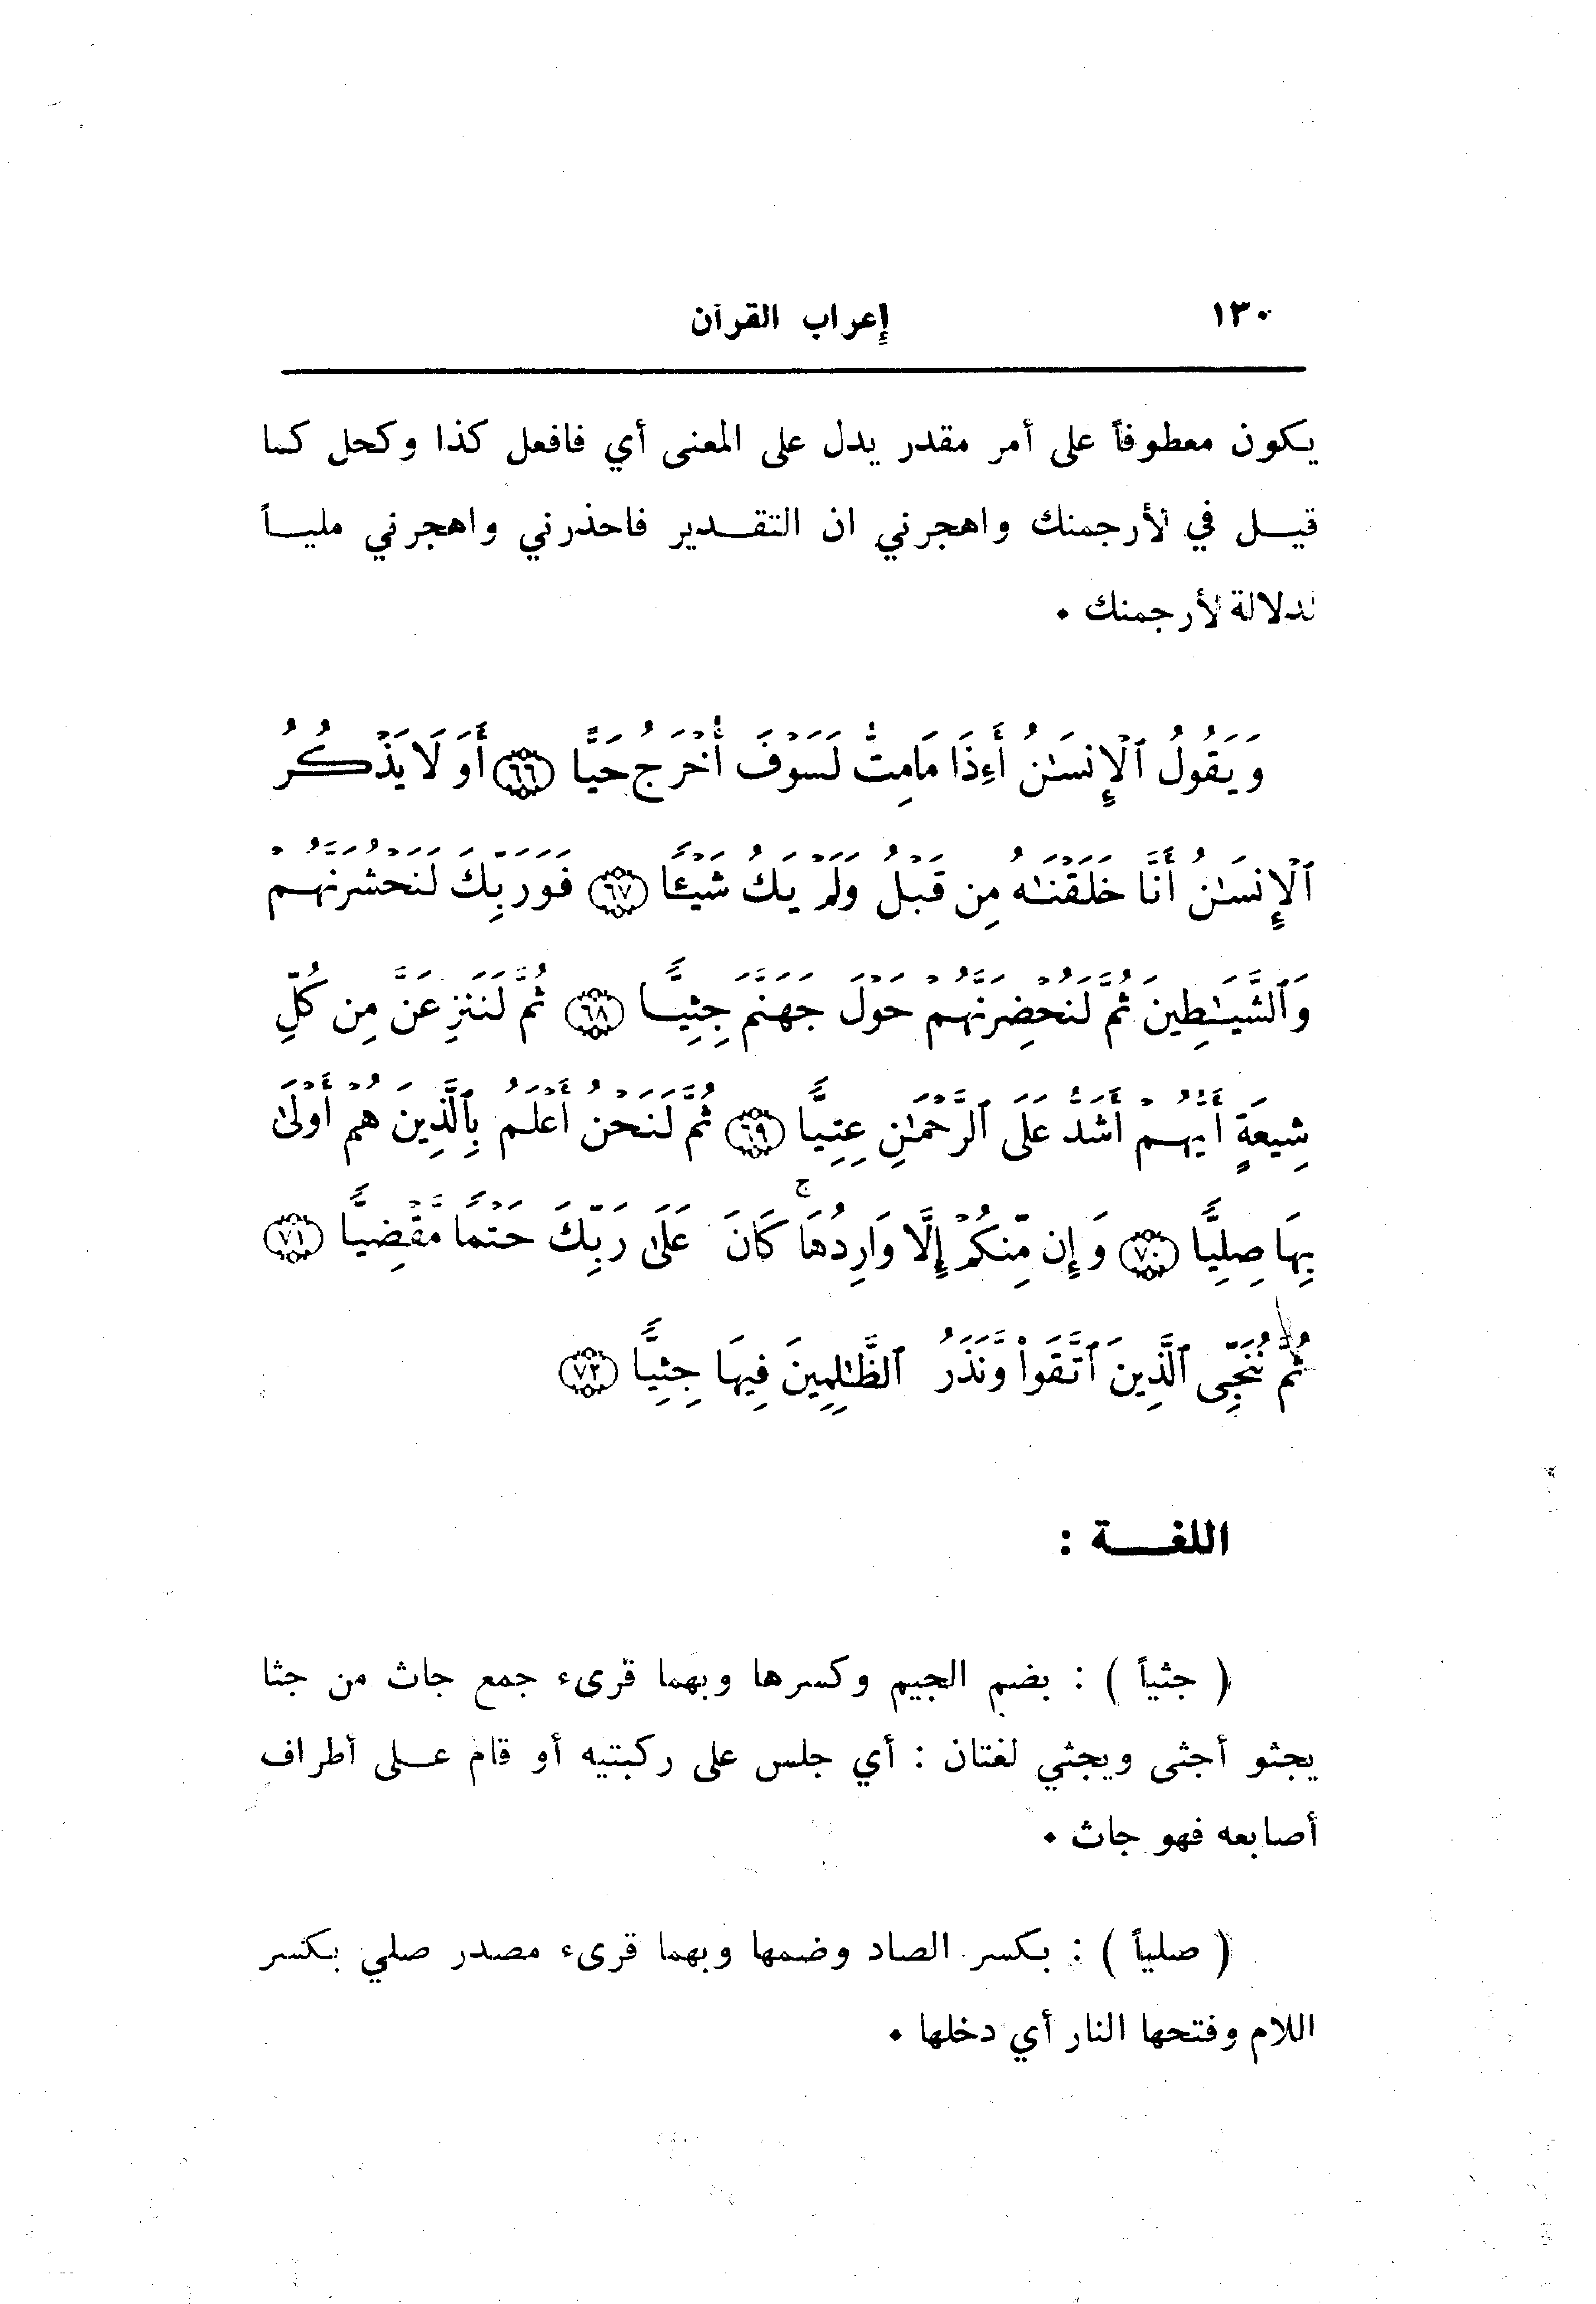 ١٣٠ إعراب القرآن
يكون معطوفاً على أمر مقدر يدل على المعنى أي فافعل كذا وكحل كما
قيل في لأرجمنك واهجرني ان التقدير فاحذرني واهجرني ملياً
لدلالة لأرجمنك ٠
وَيَقُولُ ٱلْإِنسَٰنُ أَءِذَا مَامِتُّ لَسَوْفَ أُخْرَجُ حَيًّا ٦٦ أَوَلَا يَذْكُرُ
ٱلْإِنسَٰنُ أَنَّا خَلَقْنَٰهُ مِن قَبْلُ وَلَمْ يَكُ شَيْـًٔا ٦٧ فَوَرَبِّكَ لَنَحْشُرَنَّهُمْ
وَٱلشَّيَٰطِينَ ثُمَّ لَنُحْضِرَنَّهُمْ حَوْلَ جَهَنَّمَ جِثِيًّا ٦٨ ثُمَّ لَنَنزِعَنَّ مِن كُلِّ
شِيعَةٍ أَيُّهُمْ أَشَدُّ عَلَى ٱلرَّحْمَٰنِ عِتِيًّا ٦٩ ثُمَّ لَنَحْنُ أَعْلَمُ بِٱلَّذِينَ هُمْ أَوْلَىٰ
بِهَا صِلِيًّا ٧٠ وَإِن مِّنكُمْ إِلَّا وَارِدُهَا ۚ كَانَ عَلَىٰ رَبِّكَ حَتْمًا مَّقْضِيًّا ٧١
ثُمَّ نُنَجِّى ٱلَّذِينَ ٱتَّقَوا۟ وَّنَذَرُ ٱلظَّٰلِمِينَ فِيهَا جِثِيًّا ٧٢
اللغـــة :
( جثياً ) : بضم الجيم وكسرها وبهما قرىء جمع جاث من جثا
يجثو أجثى ويجثي لغتان : أي جلس على ركبتيه أو قام على أطراف
أصابعه فهو جاث ٠
( صلياً ) : بكسر الصاد وضمها وبهما قرىء مصدر صلي بكسر
اللام وفتحها النار أي دخلها ٠